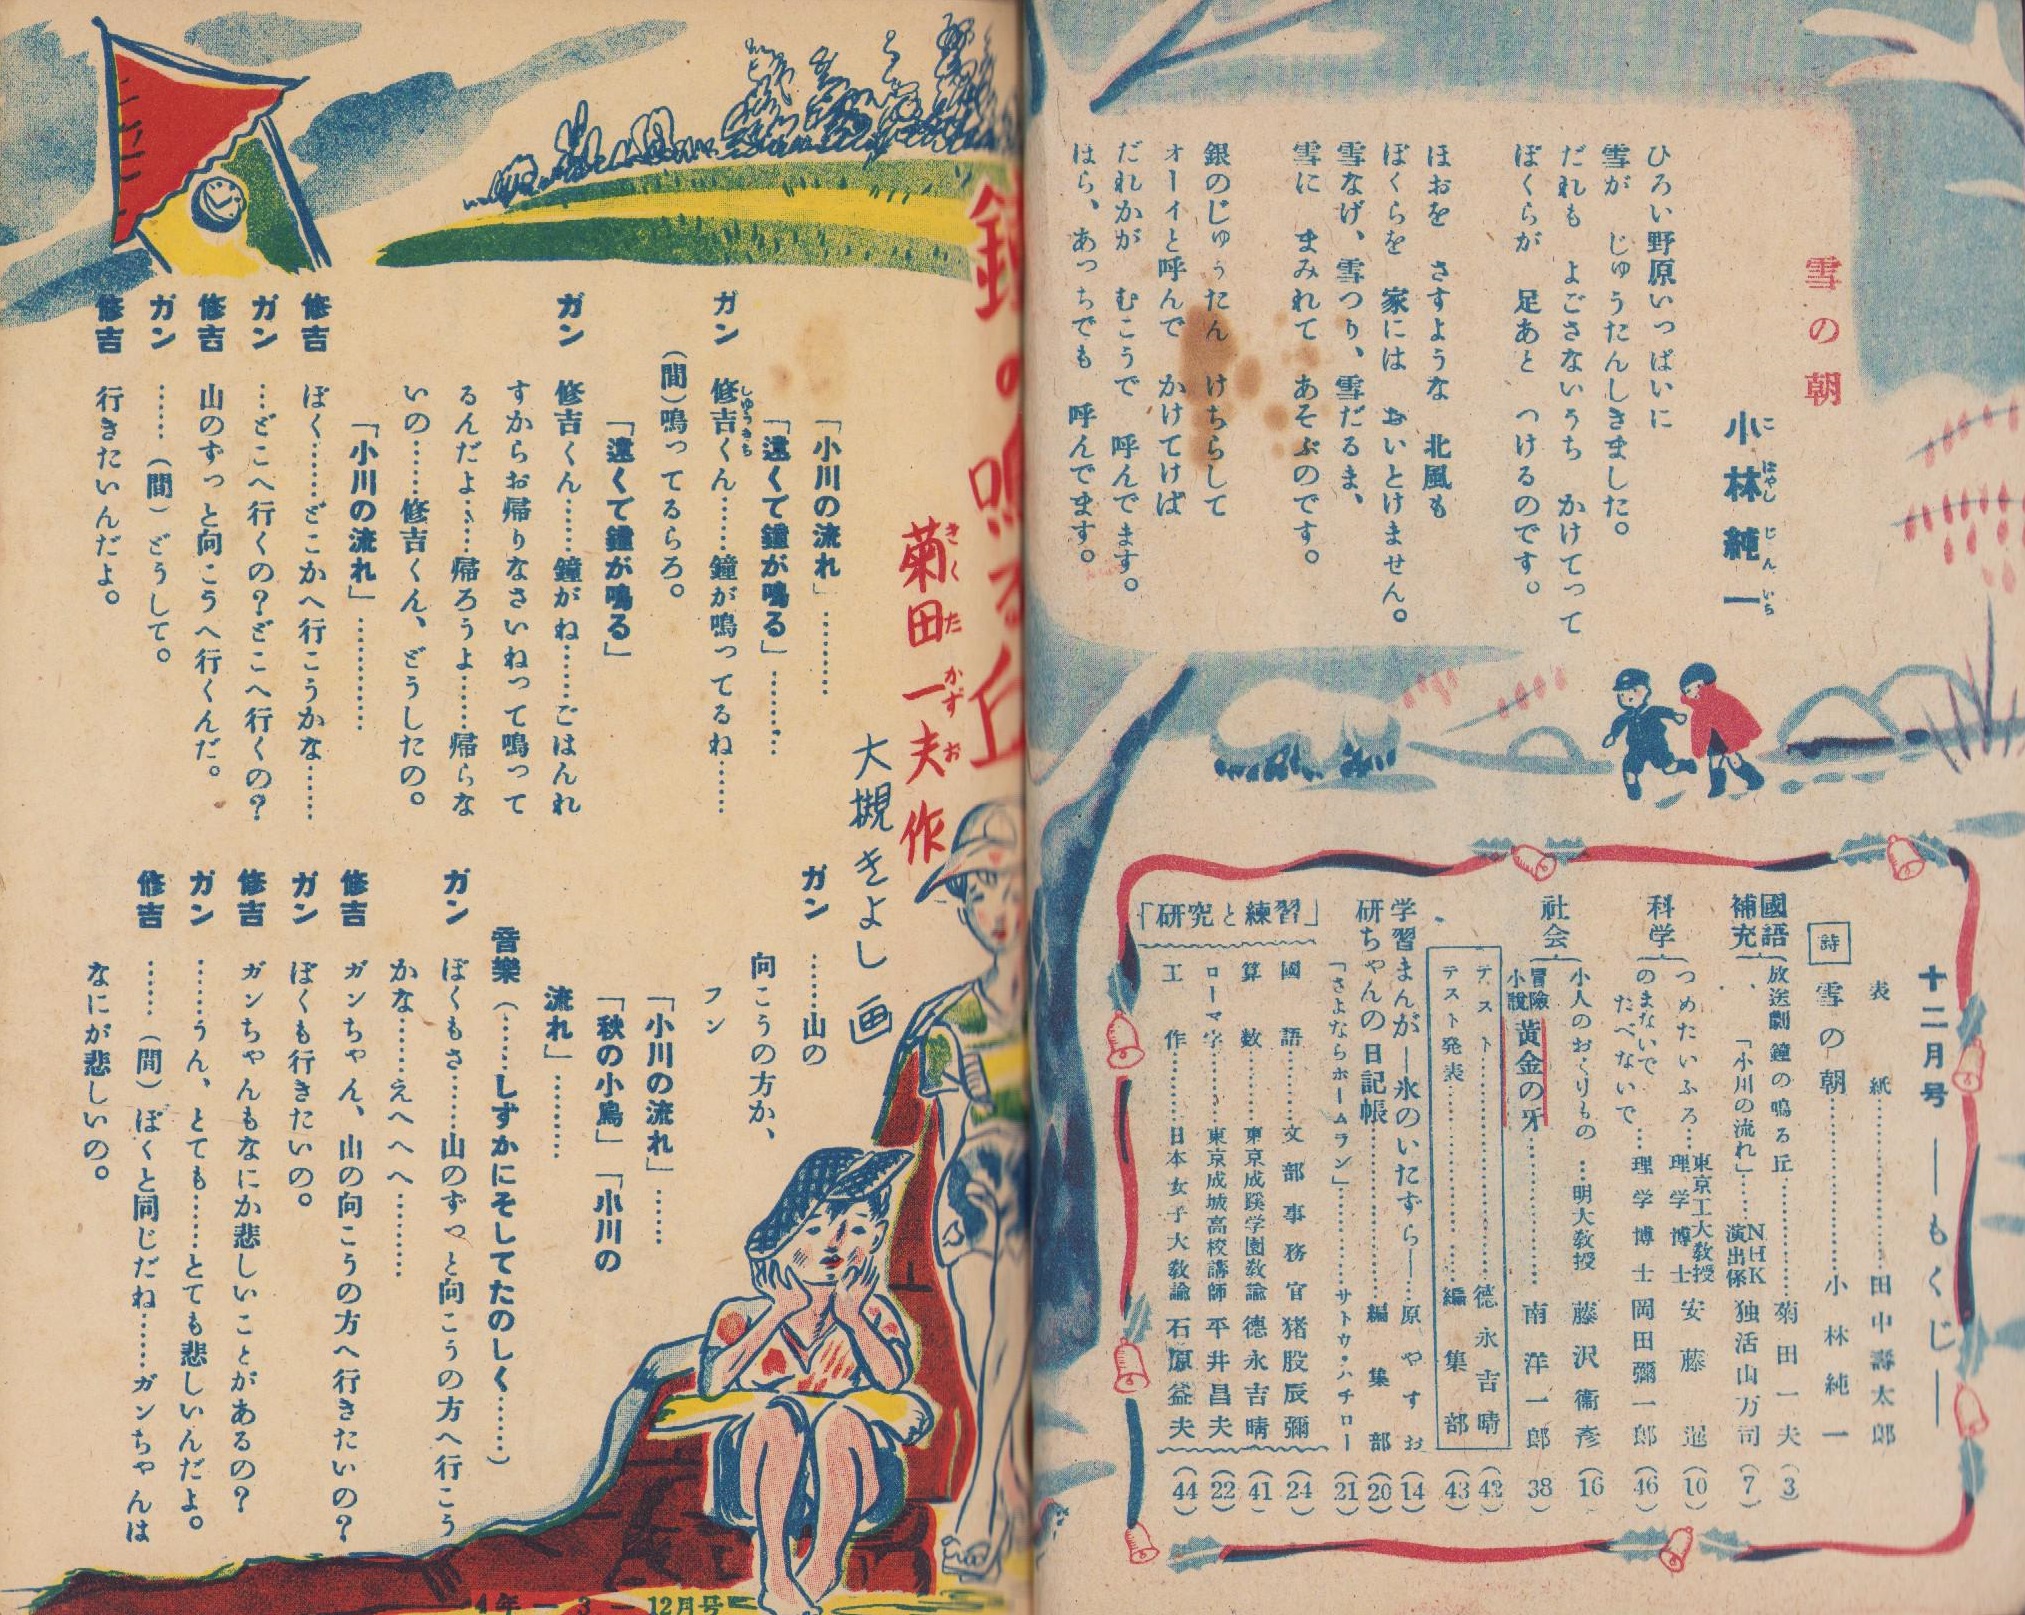 雪の朝
小林純一
こばやしじんいち
ひろい野原いっぱいに
雪が じゅうたんしきました。
だれも よごさないうち かけてって
ぼくらが 足あと つけるのです。
ほおを さすような 北風も
ぼくらを 家には おいとけません。
雪なげ、雪つり、雪だるま、
雪に まみれて あそぶのです。
銀のじゅうたん けちらして
オーイと呼んで かけてけば
だれかが むこうで 呼んでます。
ほら、あっちでも 呼んでます。
十二月号 ―もくじ―
表紙………………田中壽太郎
詩 雪の朝………………小林純一
國語補充
放送劇 鐘の鳴る丘………………菊田一夫(3)
、「小川の流れ」……NHK演出係 独活山万司(7)
科学
つめたいふろ…東京工大教授 理学博士 安藤 (10)
のまないで たべないで…理学博士 岡田彌一郎(46)
社会
小人のおくりもの…明大教授 藤沢衞彦(16)
冒險小說 黃金の牙………………南洋一郎(38)
テスト………………徳永吉晴(42)
テスト発表………………編集部(43)
学習まんが―氷のいたずら―……原やすお(14)
研ちゃんの日記帳………………編集部(20)
「さよならホームラン」………………サトウ・ハチロー(21)
「研究と練習」
國語………文部事務官 猪股辰彌(24)
算数………東京成蹊学園教諭 徳永吉晴(41)
ローマ字………東京成城高校講師 平井昌夫(22)
工作………日本女子大教諭 石原益夫(44)
鐘の鳴る丘
菊田一夫作
きくたかずお
大槻きよし画
「小川の流れ」…………
「遠くで鐘が鳴る」…………
ガン 修吉くん……鐘が鳴ってるね……
しゅうきち
(間)鳴ってるらろ。
「遠くで鐘が鳴る」
ガン 修吉くん……鐘がね……ごはんれ
すからお帰りなさいねって鳴って
るんだよ……帰ろうよ……帰らな
いの……修吉くん、どうしたの。
「小川の流れ」…………
修吉 ぼく……どこかへ行こうかな……
ガン …どこへ行くの?どこへ行くの?
修吉 山のずっと向こうへ行くんだ。
ガン ……(間)どうして。
修吉 行きたいんだよ。
ガン ……山の
向こうの方か、
フン
「小川の流れ」……
「秋の小鳥」「小川の
流れ」…………
音樂(……しずかにそしてたのしく……)
ガン ぼくもさ……山のずっと向こうの方へ行こう
かな……えへへへ…………
修吉 ガンちゃん、山の向こうの方へ行きたいの?
ガン ぼくも行きたいの。
修吉 ガンちゃんもなにか悲しいことがあるの?
ガン ……うん、とても……とても悲しいんだよ。
修吉 ……(間)ぼくと同じだね……ガンちゃんは
なにが悲しいの。
4年―3―12月号